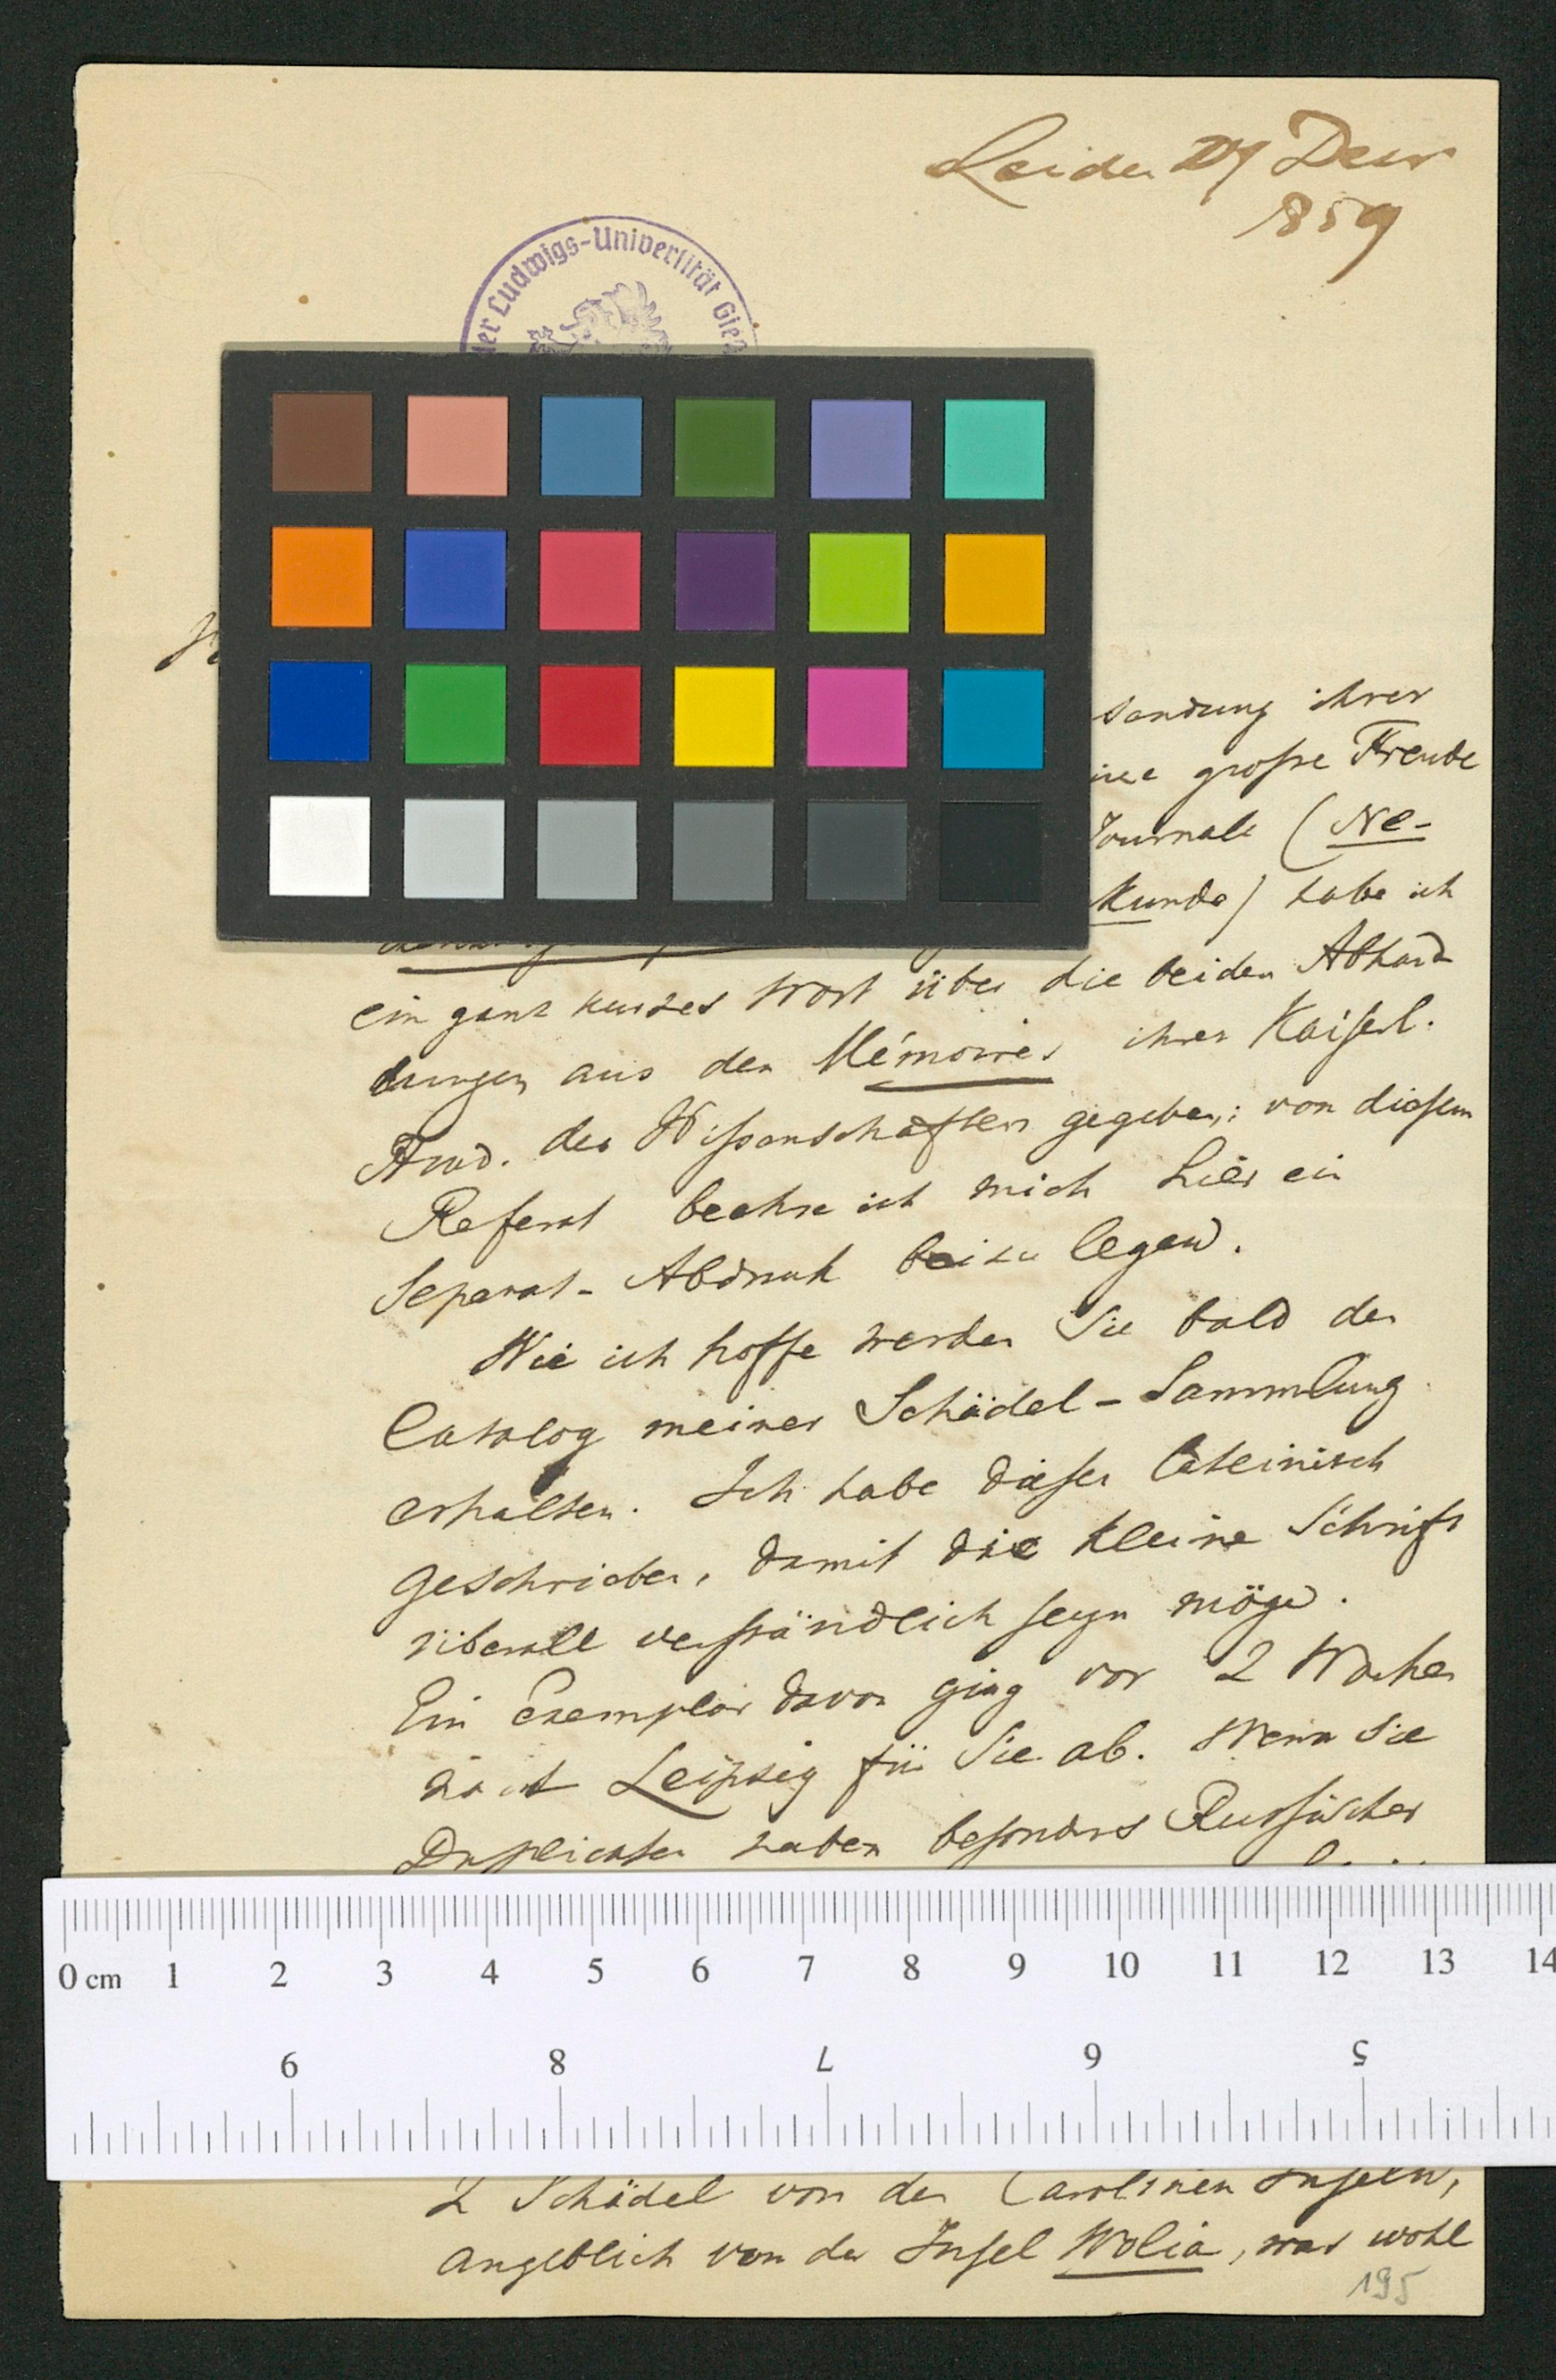 Leiden 29 Decr
859
der Ludwigs-Universität Gieß
sendung ihrer
große Freude
Journale (Ne-
kunde) habe ich
ein ganz kurzes Wort über die beiden Abhand
lungen aus den Mémoires ihrer Kaiserl.
Acad. der Wissenschaften gegeben; von diesem
Referat beehre ich mich hier ein
Separat-Abdruck beizu legen.
Wie ich hoffe werden Sie bald den
Catalog meiner Schädel-Sammlung
erhalten. Ich habe diesen lateinisch
geschrieben, damit die kleine Schrift
überall verständlich seyn möge.
Ein Exemplar davon ging vor 2 Wochen
nach Leipzig für Sie ab. Wenn Sie
Duplicaten haben besonders Russischer
0 cm 1 2 3 4 5 6 7 8 9 10 11 12 13 14
9 8 7 6 5
2 Schädel von den Carolinen Inseln,
angeblich von der Insel Wolia, was wohl
195